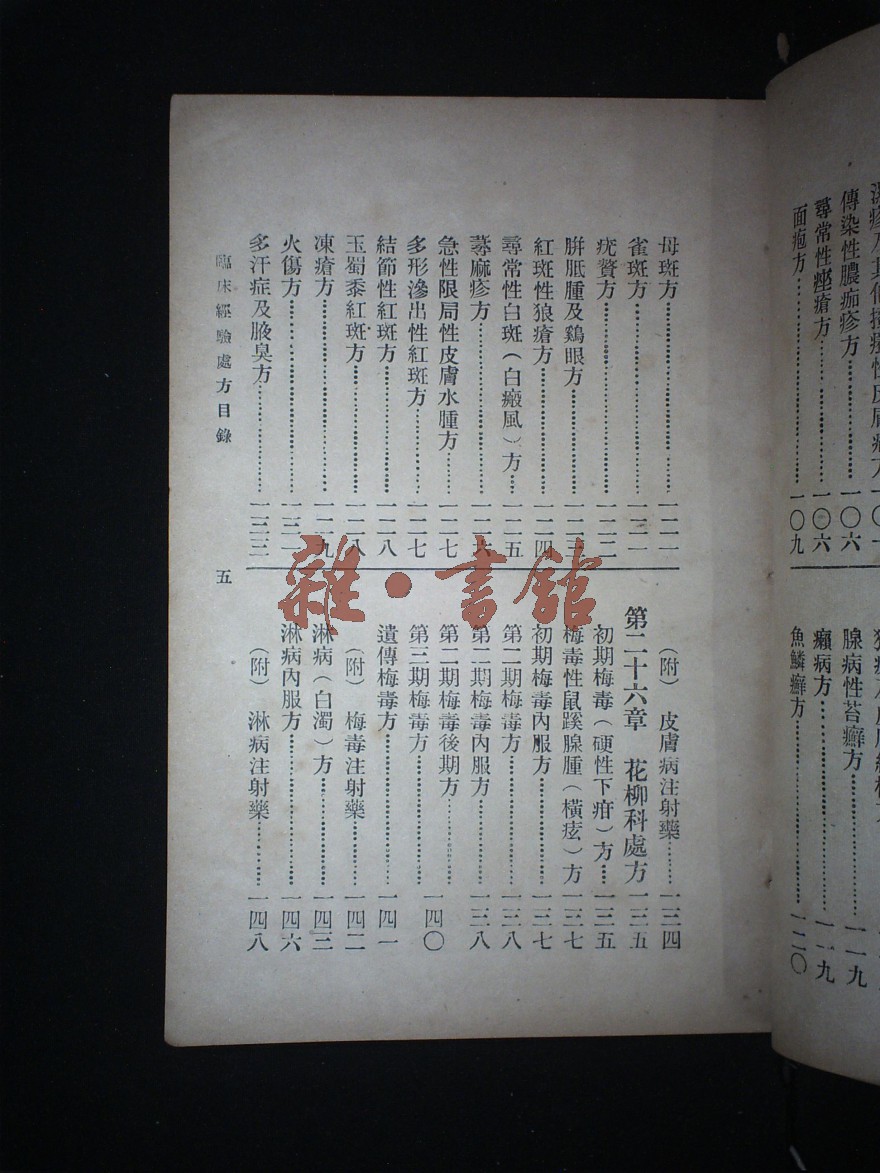 傳染性膿痂疹方………一〇六
尋常性痤瘡方………一〇六
面皰方………一〇九
腺病性苔癬方………一一九
癩病方………一一九
魚鱗癬方………一二〇
母斑方………一二一
雀斑方………一二一
疣贅方………一二二
胼胝腫及鷄眼方………一二三
紅斑性狼瘡方………一二四
尋常性白斑(白癜風)方…一二五
蕁麻疹方………一二六
急性限局性皮膚水腫方……一二七
多形滲出性紅斑方………一二七
結節性紅斑方………一二八
玉蜀黍紅斑方………一二八
凍瘡方………一二九
火傷方………一三一
多汗症及腋臭方………一三三
(附) 皮膚病注射藥………一三四
第二十六章 花柳科處方 一三五
初期梅毒(硬性下疳)方…一三五
梅毒性鼠蹊腺腫(橫痃)方 一三七
初期梅毒內服方………一三七
第二期梅毒方………一三八
第二期梅毒內服方………一三八
第二期梅毒後期方………
第三期梅毒方………一四〇
遺傳梅毒方………一四一
(附) 梅毒注射藥………一四二
淋病(白濁)方………一四三
淋病內服方………一四六
(附) 淋病注射藥………一四八
臨床經驗處方目錄
五
雜·書館